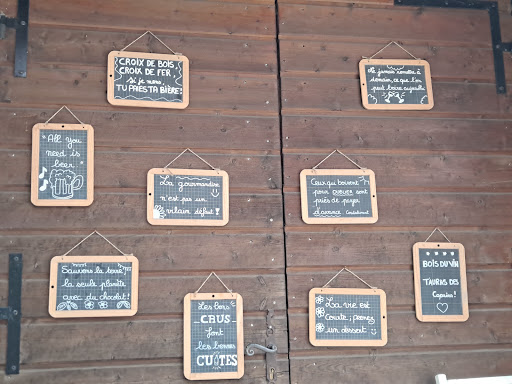 CROIX DE BOIS,
CROIX DE FER,
si je mens,
TU PAIES TA BIÈRE!
Ne jamais remettre à
demain, ce que l'on
peut boire aujourd'hui
"All you
need is
beer"
La gourmandise
n'est pas un
vilain défaut!
Ceux qui boivent
pour OUBLIER sont
priés de payer
d'avance
Sauvons la terre
la seule planète
avec du chocolat!
BOIS DU VIN
TAURAS DES
Copains!
Les bons
CRUS
font
les bonnes
CUITES
La vie est
courte; prenez
un dessert